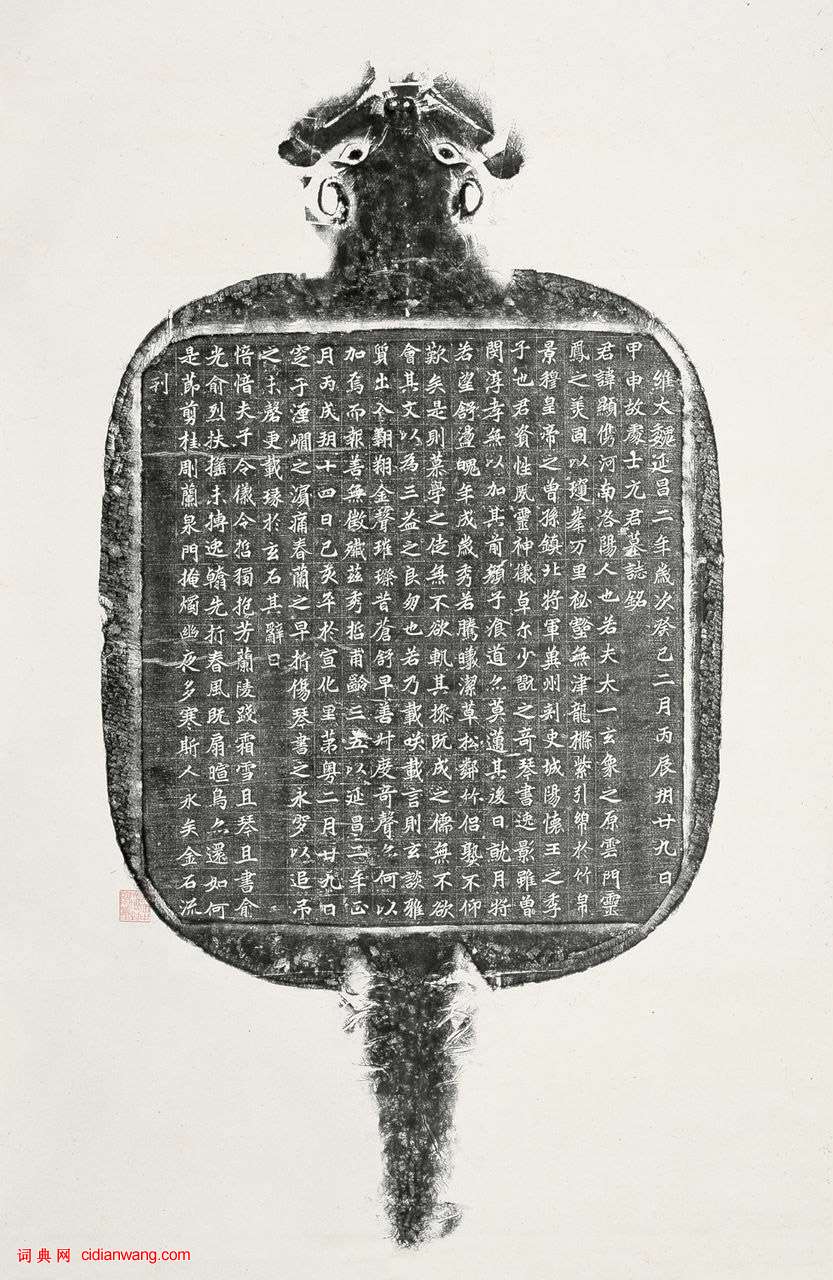 維大魏延昌二年歲次癸巳二月丙辰朔廿九日
甲申故處士元君墓誌銘
君諱顯儁河南洛陽人也若夫太一玄象之原雲門靈
鳳之美固以瓊峯万里祕壑無津龍檦紫引綿於竹帛
景穆皇帝之曾孫鎮北將軍冀州刺史城陽懷王之季
子也君資性夙靈神儀卓尒少翫之奇琴書逸影雖曾
閔淳孝無以加其前顏子湌道亦莫邁其後日就月將
若望舒盪魄年成歲秀若騰曦潔草松鄰竹侶熟不仰
歎矣是則慕學之徒無不欲軌其操既成之儒無不欲
會其文以為三益之良朋也若乃載唉載言則玄談雅
質出入翱翔金聲璀璨昔蒼舒早善叶度奇聲亦何以
加焉而報善無徵殲茲秀哲甫齡三五以延昌二年正
月丙戌朔十四日己亥卒於宣化里第粵二月廿九日
窆于瀍澗之濱痛春蘭之早折傷琴書之永穸以追弔
之未磬更載琢於玄石其辭曰
愔愔夫子令儀令哲獨抱芳蘭陵踐霜雪且琴且書俞
光俞烈扶搖未摶逸翰先折春風既扇暄鳥亦還如何
是節剪桂彫蘭泉門掩燭幽夜多寒斯人永矣金石流
刊
词典网 cidianwang.com